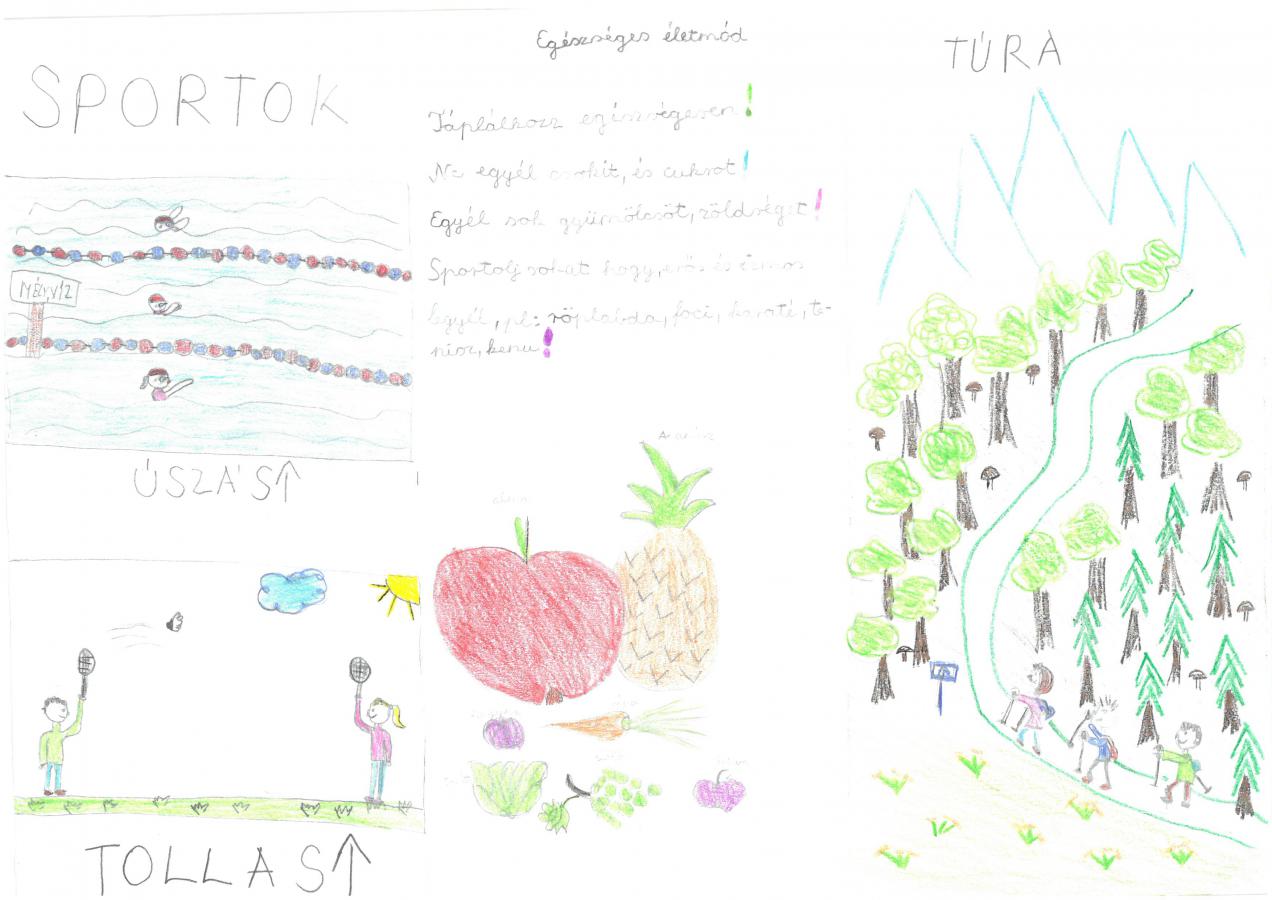 SPORTOK
MÉLYVÍZ
ÚSZÁS↑
TOLLAS↑
Egészséges életmód
Táplálkozz egészségesen!
Ne egyél csokit, és cukrot!
Egyél sok gyümölcsöt, zöldséget!
Sportolj sokat hogy, erős és izmos
legyél, pl: röplabda, foci, karaté, te-
nisz, kenu!
Ananász
alma
TÚRA